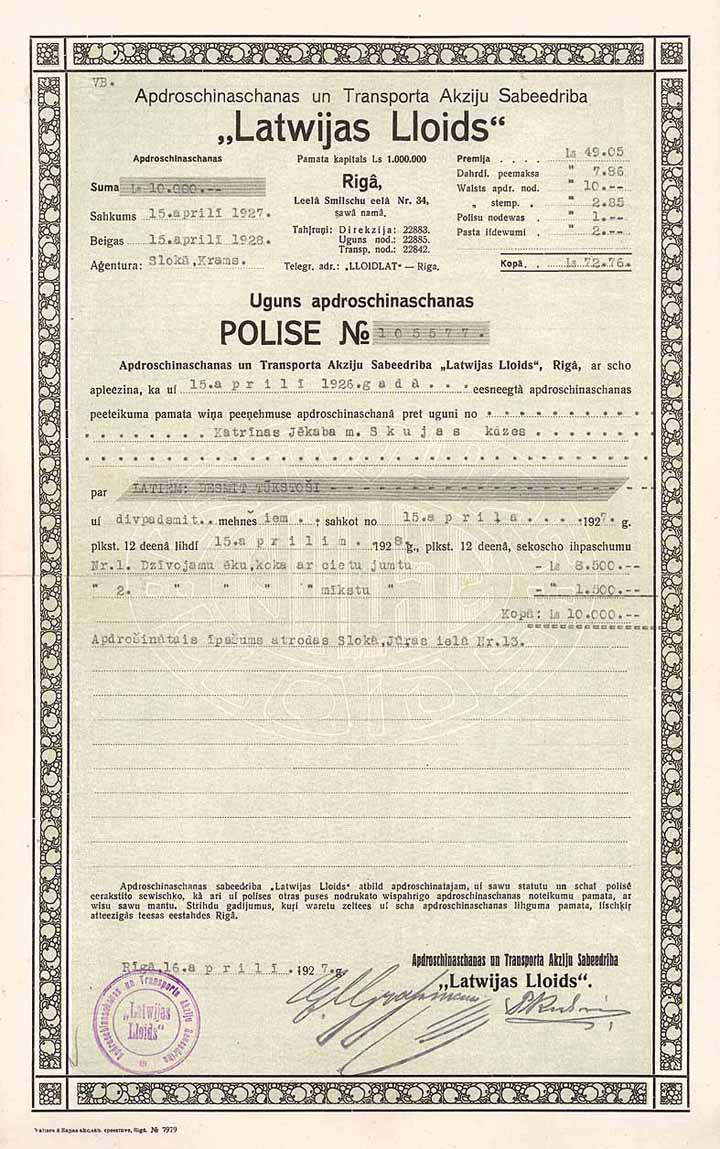 VB.
Apdroschinaschanas un Transporta Akziju Sabeedriba
„Latwijas Lloids“
Apdroschinaschanas
Suma Ls 10.000.--
Sahkums 15.aprilī 1927.
Beigas 15.aprilī 1928.
Aģentura: Slokā, Krams.
Pamata kapitals Ls 1.000.000
Rigâ,
Leelâ Smilschu eelâ Nr. 34,
sawâ namâ.
Tahlruņi: Direkzija: 22883.
Uguns nod.: 22885.
Transp. nod.: 22842.
Telegr. adr.: „LLOIDLAT“ — Riga.
Premija . . . . Ls 49.05
Dahrdl. peemaksa " 7.86
Walsts apdr. nod. " 10.--
„ stemp. . " 2.85
Polisu nodewas . " 1.--
Pasta ifdewumi . " 2.--
Kopâ. . Ls 72.76.
Uguns apdroschinaschanas
POLISE № 105577.
Apdroschinaschanas un Transporta Akziju Sabeedriba „Latwijas Lloids“, Rigâ, ar scho
apleezina, ka uf 15.aprilī 1926.gadā... eesneegtâ apdroschinaschanas
peeteikuma pamata wiņa peeņehmuse apdroschinaschanâ pret uguni no
Katrīnas Jēkaba m. Skujas kūzes
par LATIEM: DESMIT TŪKSTOŠI
uf divpadsmit.. mehneschiem . . sahkot no 15.apriļa .... 1927. g.
plkst. 12 deenâ lihdf 15.aprilim. 1928. g., plkst. 12 deenâ, sekoscho ihpaschumu
Nr.1. Dzīvojamu ēku, koka ar cietu jumtu - Ls 8.500.--
" 2. " " " " mīkstu " - " 1.500.--
Kopā: Ls 10.000.--
Apdrošinātais īpašums atrodas Slokā, Jūras ielā Nr.13.
Apdroschinaschanas sabeedriba „Latwijas Lloids“ atbild apdroschinatajam, uf sawu statutu un schaî polisê
eerakstito sewischķo, kâ ari uf polises otras puses nodrukato wispahrigo apdroschinaschanas noteikumu pamata, ar
wisu sawu mantu. Strihdu gadijumus, kuŗi waretu zeltees uf scha apdroschinaschanas lihguma pamata, ifschķiŗ
atteezigâs teesas eestahdes Rigâ.
Rīgā, 16.aprilī .1927. g.
Apdroschinaschanas un Transporta Akziju Sabeedriba
„Latwijas Lloids“.
Apdroschinaschanas un Transporta Akziju Sabeedriba
„Latwijas
Lloids“
Rigâ. № 7979